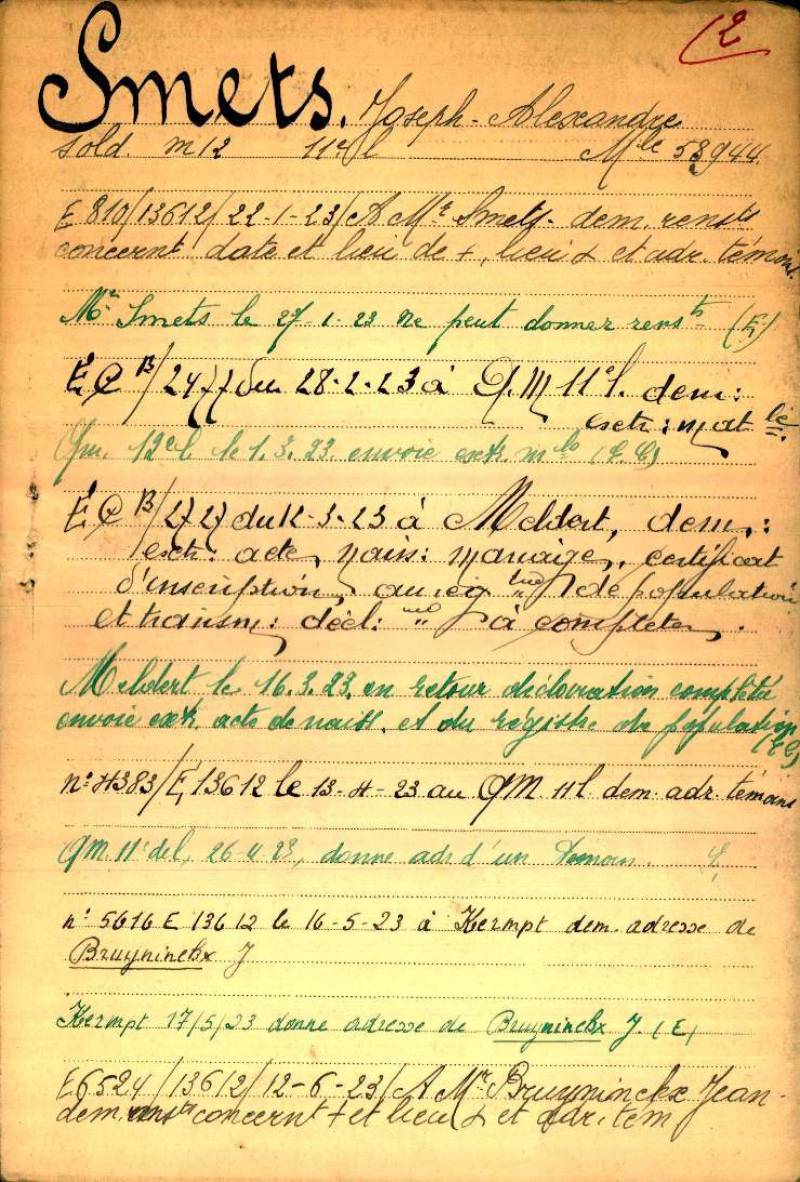 (2
Smets. Joseph-Alexandre
sold. m 12 11e l Mle 58944.
E 810/13612/22-1-23/A Mr Smets. dem. renots
concernt date et lieu de +, lieu & et adr. témoins.
Mr Smets le 27-1-23 Ne peut donner rensts (E)
E C B/2477 du 28-2-23 à Q. M 11e l. dem:
extr: mat le.
Qm. 12e l. le 1.3.23. envoie extr. mle (E.C)
E C B/2727 du 12-3-23 à Meldert, dem.:
extr: acte, nais: mariage, certificat
d'inscription, au reg tre de population
et transm: décl: à completer.
Meldert le 16.3.23. en retour déclaration complétée
envoie extr. acte de naiss. et du régistre de population
(E C)
n° 4383/E, 13612 le 13-4-23 au QM 11 l dem. adr. témoins
QM. 11e de l, 26 4 23, donne adr d'un temoin. E,
n° 5616 E 13612 le 16-5-23 à Kermpt dem. adresse de
Bruyninckx J
Kermpt 17/5/23 donne adresse de Bruyninckx J. (E)
E 6524/13612/12-6-23/A Mr Bruyninckx Jean-
dem. rensts concernt + et lieu & et adr. tem